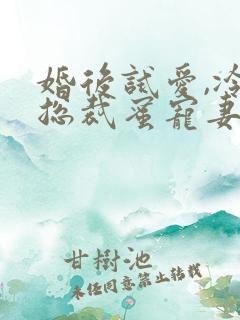 婚後試愛,冷
總裁蜜寵妻
甘樹池
未經同意禁止轉載